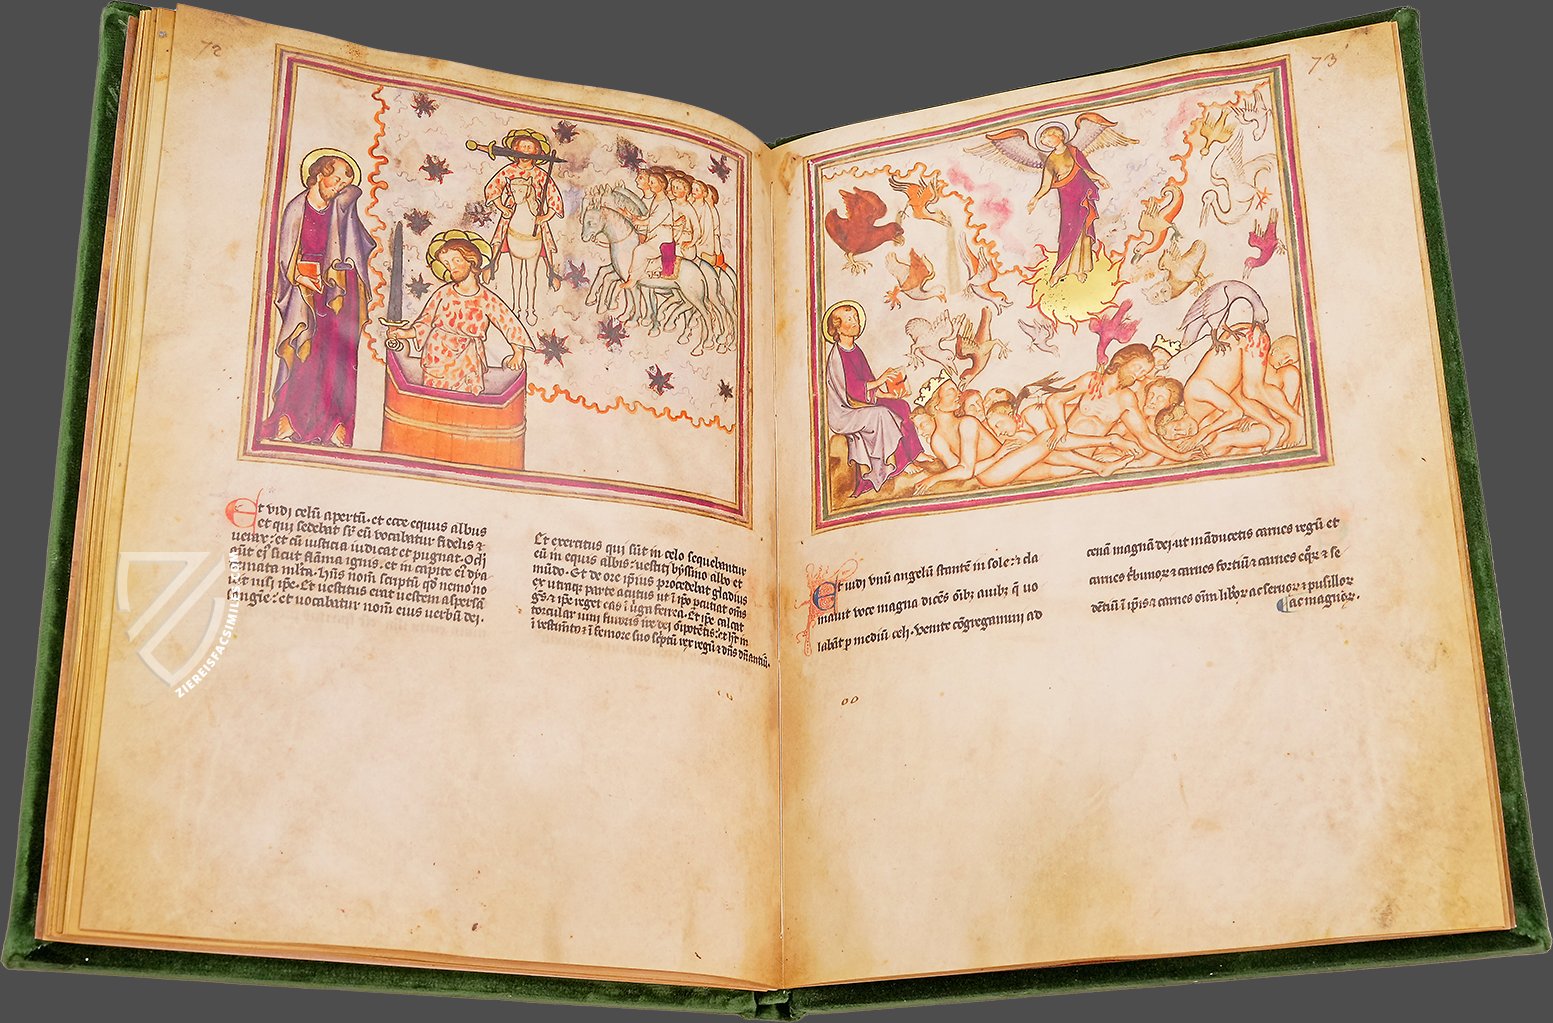 72
Et vidi celū apertū · et ecce equus albus
et qui sedebat sr̄ eū vocabatur fidelis ⁊
verax · et cū iusticia iudicat et pugnat · Odi
sūt eȷ̄ sicut flāma ignis · et in capite eī dya
demata mlta · hn̄s nom̄ scriptū qd nemo no
uit nisi ip̄e · Et vestitus erat vestem aspersā
sangīe · et vocabatur nom̄ eius verbū dei ·
Et exercitus qui sūt in celo sequebantur
eū in equis albis · uestiti byssino albo et
mūdo · Et de ore ip̄ius procedebat gladius
ex utraqꝫ parte acutus ut ī ip̄o pcutiat om̄s
gēs · ⁊ ip̄e reget eas ī uga ferrea · Et ip̄e calcat
torcular uini furoris ire dei
ī uestimēto ⁊ ī femore suo sc̄ptū rex regū ⁊ dn̄s dn̄antiū ·
73
Et vidi unū angelū stantē in sole · ⁊ cla
mauit voce magna dicēs oībꝫ auibꝫ q̄ uo
labāt p mediū celi · Venite cōgregamini ad
cenā magnā dei · ut māducetis carnes regū et
carnes tbunoꝝ ⁊ carnes fortiū ⁊ carnes eqꝝ ⁊ se
dētiū ī ip̄is ⁊ carnes oīm libꝝ ac seruoꝝ ⁊ pusilloꝝ
ac magnoꝝ ·
ZIEREISFACSIMILES.COM